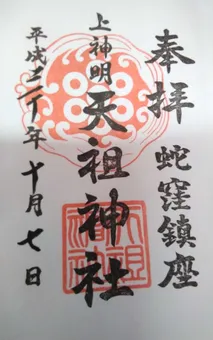 奉拝
蛇窪鎮座
上神明
天祖神社
平成三十年十月七日